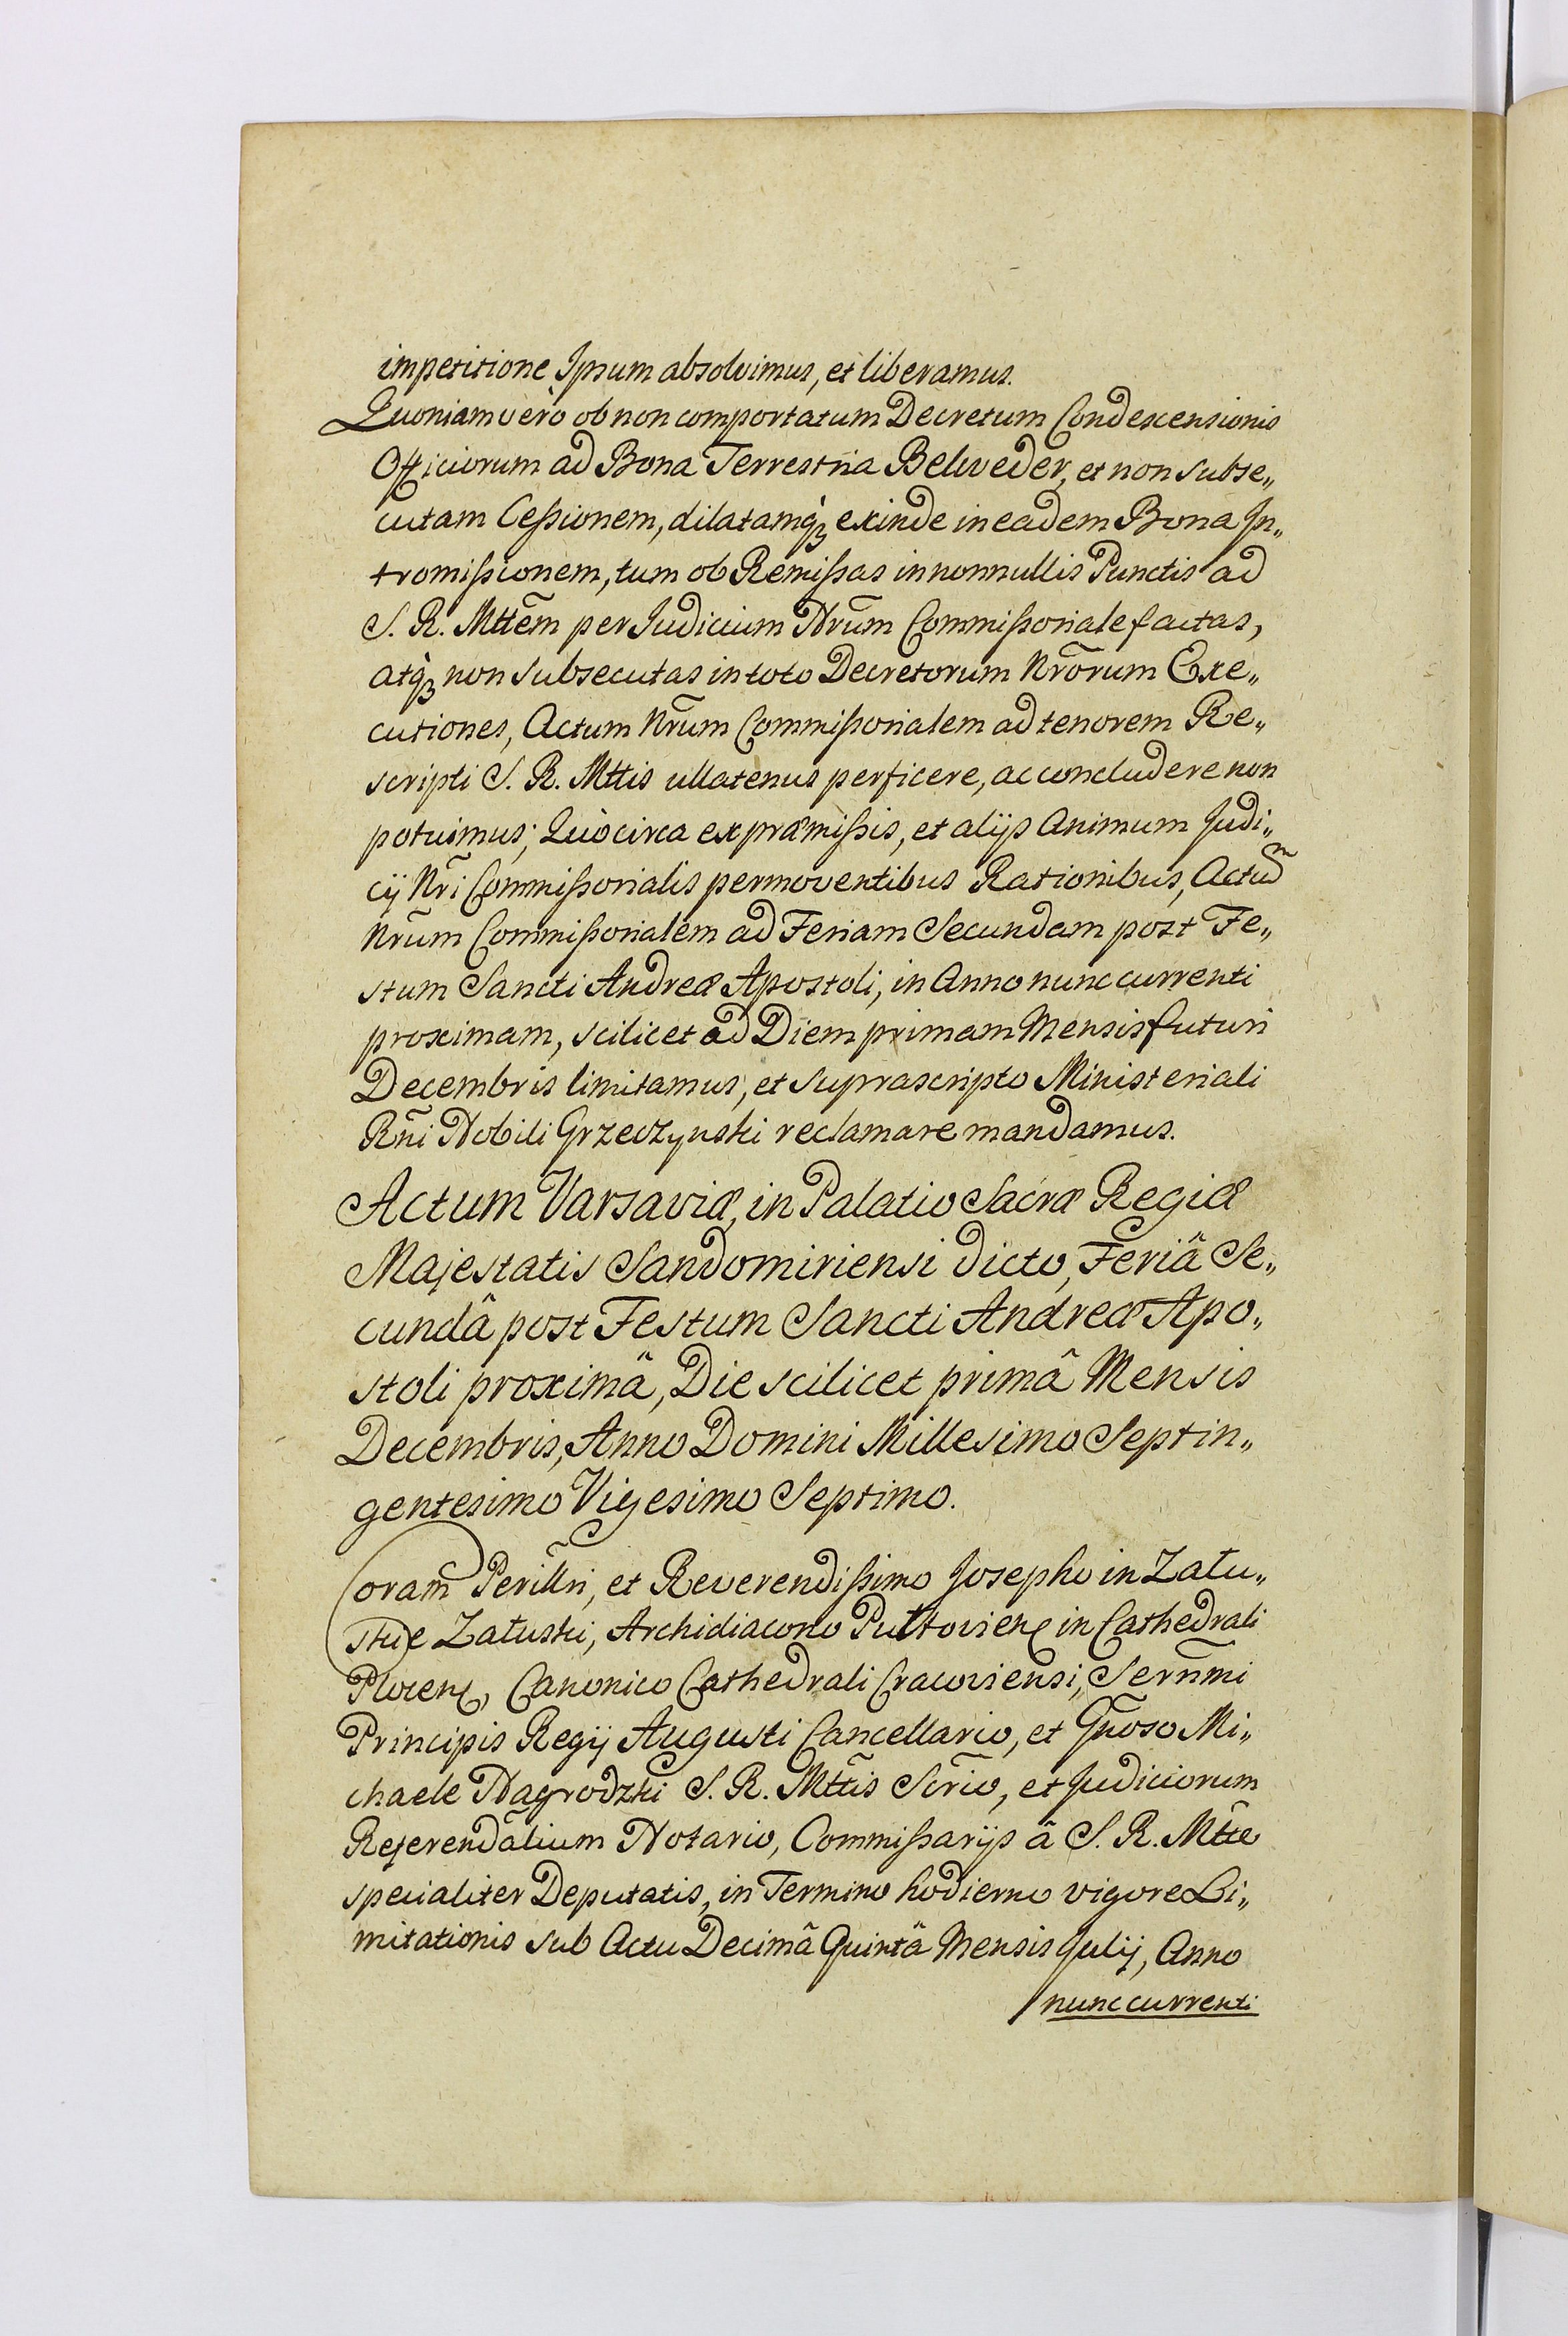 impetitione Ipsum absolvimus, et liberamus.
Quoniam verò ob non comportatum Decretum Condescensionis
Officiorum ad Bona Terrestria Belweder, et non subse„
cutam Cessionem, dilatamq́ꝫ exinde in eadem Bona In„
tromissionem, tum ob Remissas in nonnullis Punctis ad
S. R. Mttem̃ per Judicium Nrum̃ Commissoriale factas,
atq́ꝫ non subsecutas in toto Decretorum Nrõrum Exe„
cutiones, Actum Nrũm Commissorialem ad tenorem Re„
scripti S. R. Mttis ullatenus perficere, ac concludere non
potuimus; Quòcirca ex præmissis, et alijs Animum Judi„
cij Nrĩ Commissorialis permoventibus Rationibus, Actum̃
Nrũm Commissorialem ad Feriam Secundam post Fe„
stum Sancti Andreæ Apostoli, in Anno nunc currenti
proximam, scilicet ad Diem primam Mensis futuri
Decembris limitamus, et suprascripto Ministeriali
Rñi Nobili Grzeczynski reclamare mandamus.
Actum Varsaviæ, in Palatio Sacræ Regiæ
Majestatis Sandomiriensi dicto, Feriâ Se„
cundâ post Festum Sancti Andreæ Apo„
stoli proximâ, Die scilicet primâ Mensis
Decembris, Anno Domini Millesimo Septin„
gentesimo Vigesimo Septimo.
Coram Perillr̃i, et Reverendissimo Josepho in Zału„
skie Załuski, Archidiacono Pułtovienę in Cathedrali
Plocenę, Canonico Cathedrali Cracoviensi, Serñmi
Principis Regij Augusti Cancellario, et Gñoso Mi„
chaele Nagrodzki S. R. Mttis̃ Scrĩo, et Judiciorum
Referendãlium Notario, Commissarijs â S. R. Mtte
specialiter Deputatis, in Termino hodierno vigore Li„
mitationis sub Actu Decimâ Quintâ Mensis Julij, Anno
nunc currenti